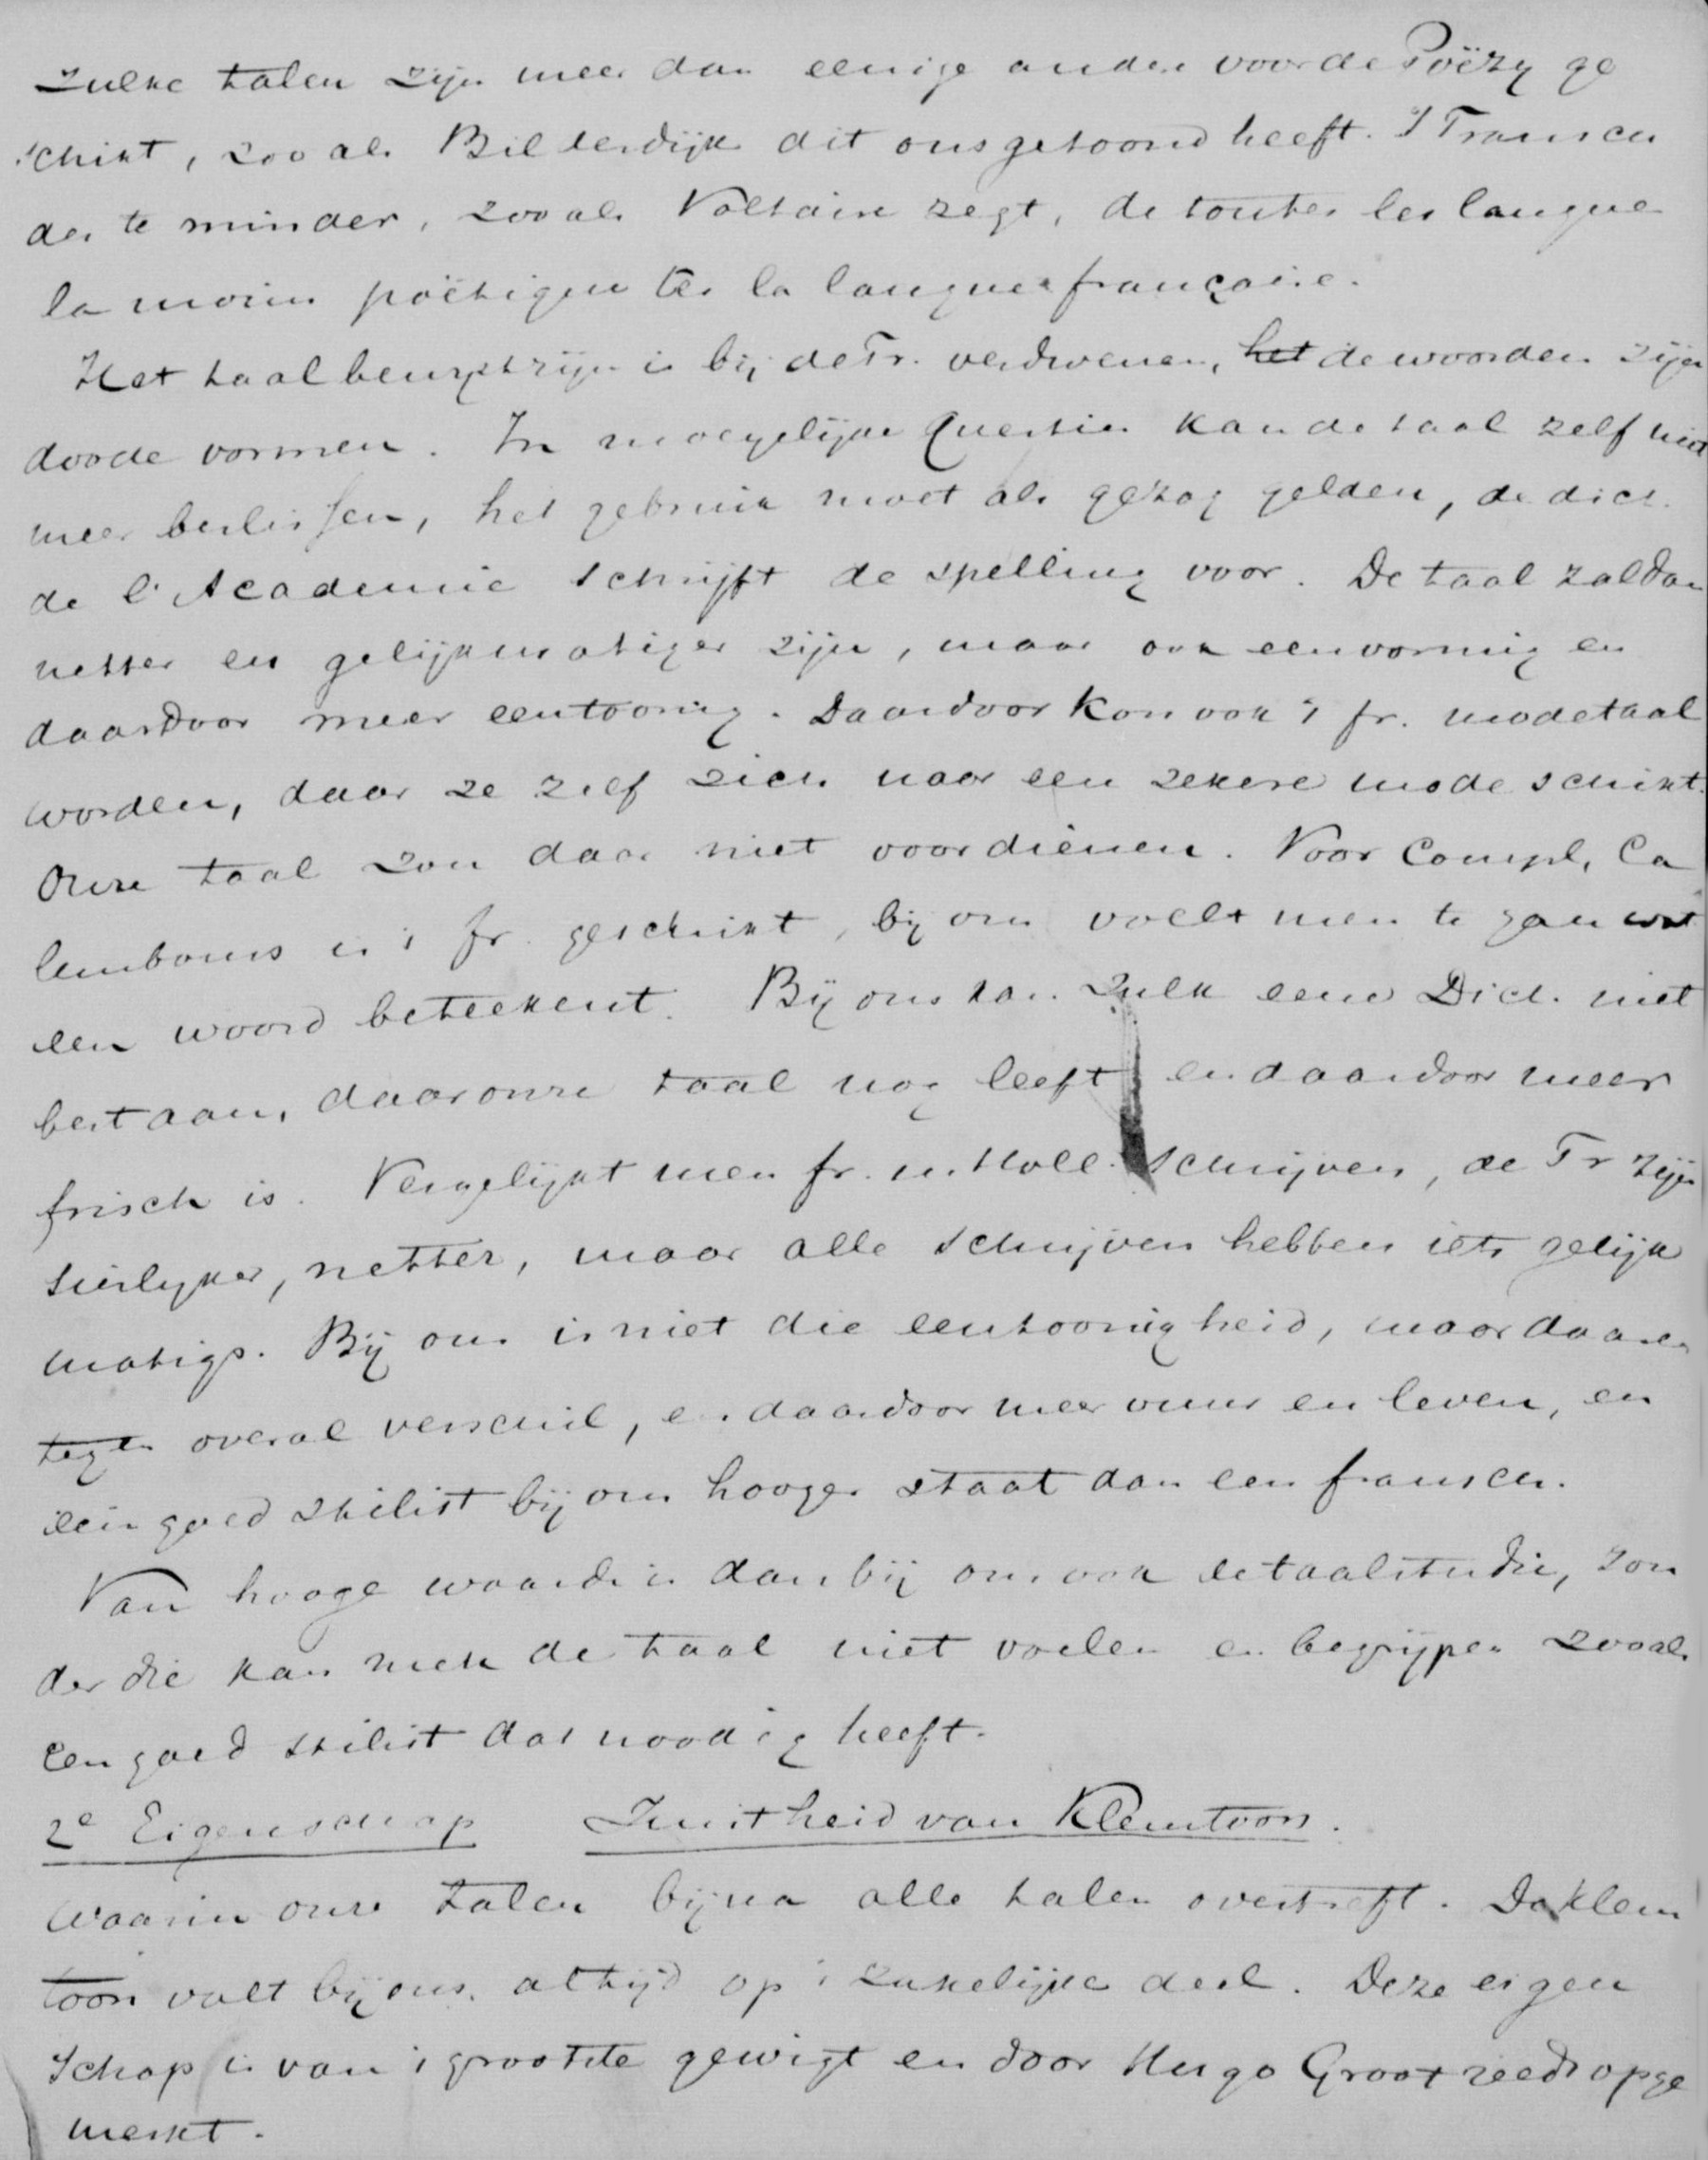 Zulke talen zijn meer dan eenige andere voor de Poëzy ge
schikt, zooals Bilderdijk dit ons getoond heeft. 't Fransch
des te minder, zooals Voltaire zegt, de toutes les langues
la moins poëtique est la langue française.
Het taalbewustzijn is bij de Fr. verdwenen, het de woorden zijn
doode vormen. In moeyelijke questies kan de taal zelf niet
meer beslissen, het gebruik moet als gezag gelden, de dict.
de l'Academie schrijft de spelling voor. De taal zal dan
netter en gelijkmatiger zijn, maar ook eenvormig en
daardoor meer eentoonig. Daardoor kon ook 't fr. modetaal
worden, daar ze zelf zich naar een zekere mode schikt.
Onze taal zou daar niet voor dienen. Voor Compl. Ca
lembours is 't fr. geschikt, bij ons voelt men te gau wat
een woord beteekent. Bij ons kan zulk eene Dict. niet
bestaan, daar onze taal nog leeft en daardoor meer
frisch is. Vergelijkt men fr. en Holl. Schrijvers, de Fr zijn
sierlyker, netter, maar alle schrijvers hebben iets gelijk
matigs. Bij ons is niet die eentoonigheid, maar daaren
tegen overal verschil, en daardoor meer vuur en leven, en
een goed stilist bij ons hooger staat dan een franschn.
Van hooge waarde is dan bij ons ook de taalstudie, zon
der die kan men de taal niet voelen en begrijpen zooals
een goed stilist dat noodig heeft.
2e Eigenschap Juistheid van Klemtoon.
Waarin onze talen bijna alle talen overtreft. De Klem
toon valt bij ons altijd op 't zakelijke deel. Deze eigen
schap is van 't grootste gewigt en door Hugo Groot reeds opge
merkt.